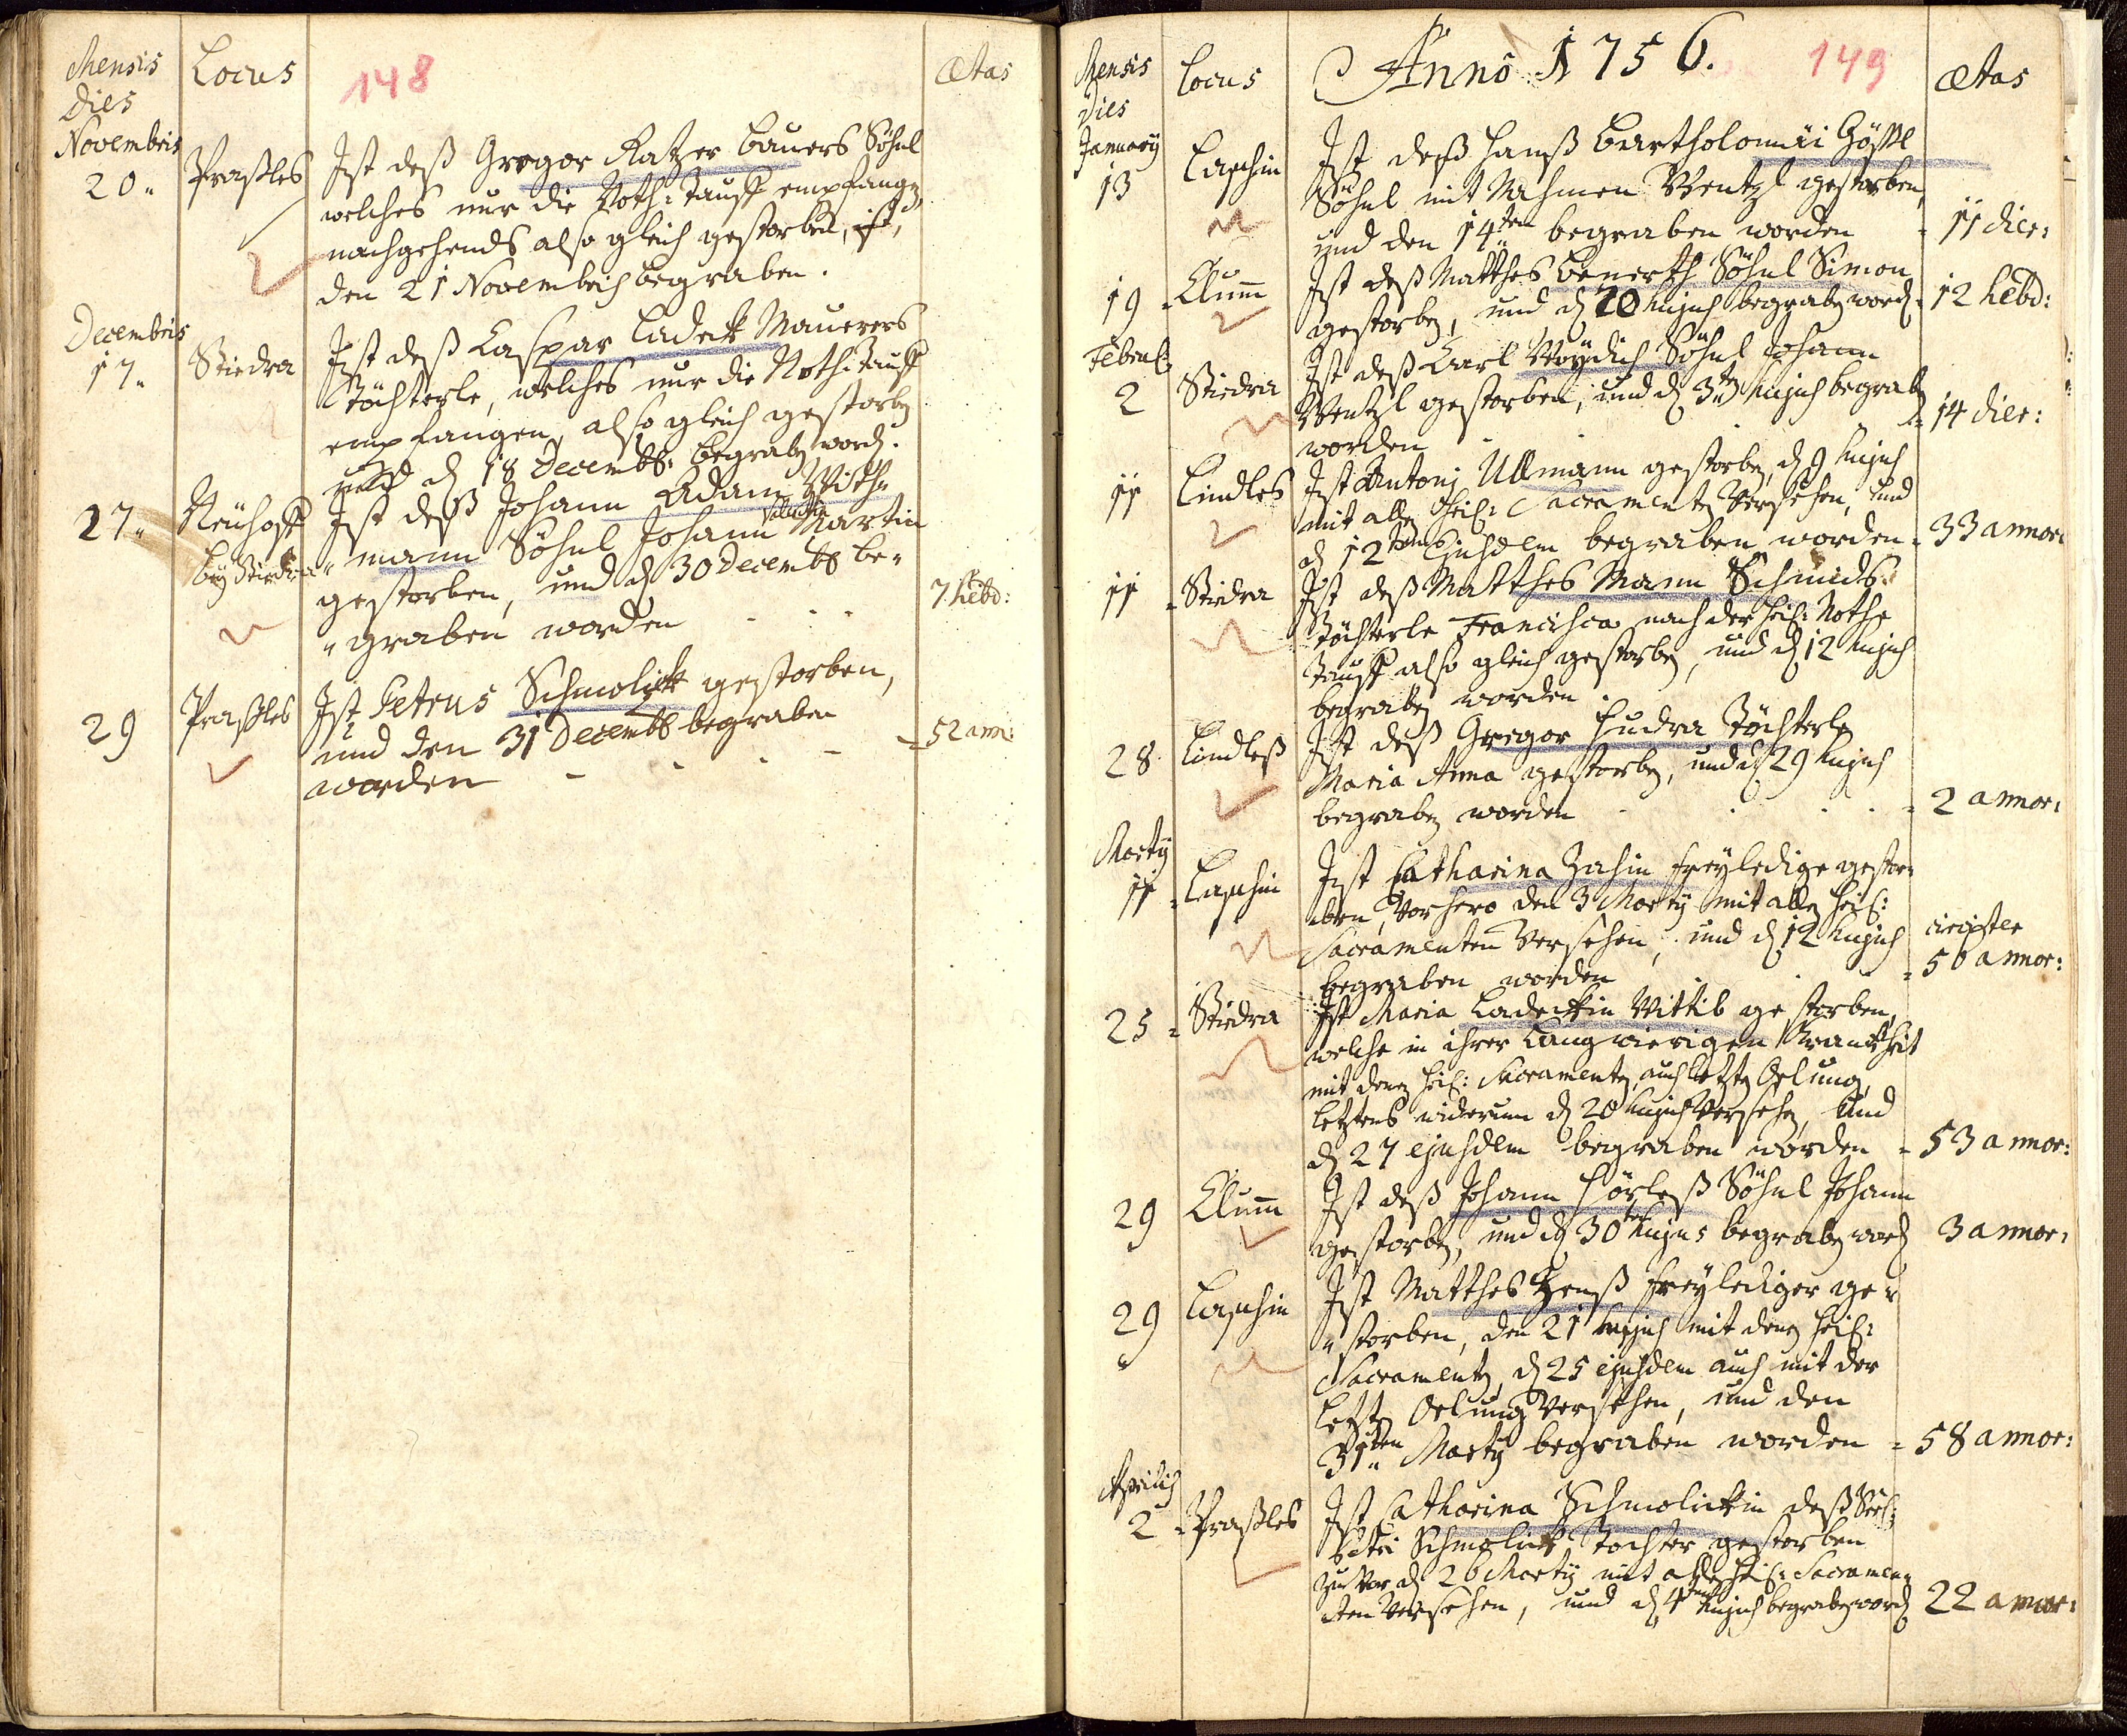 Mensis
Dies
Locus
148
Ætas
Novembris
20. Praßles Ist deß Gregor Ratzer Bauers Söhnl
welches nur die Noth: Tauff empfangen,
nachgehends also gleich gestorben, ist,
den 21 Novembris begraben.
Decembris
17. Stiedra Ist deß Caspar Ladeck Mauerers
Töchterle, welches nur die Noth: Tauff
empfangen, also gleich gestorben
und den 18 Decembr: begraben word.
27. Neuhoff Ist deß Johann Adam With„
bey Stiedra „mann Söhnl Johann Martin
gestorben, und den 30 Decembr be„
„graben worden 7 hebd:
29 Praßles Ist Petrus Schmolick gestorben,
und den 31 Decembr begraben
worden 52 ann:
Mensis
Dies
Locus
Anno 1756.
149
Ætas
January
13 Laschin Ist deß Hanß Bartholomäi Gößl
Söhnl mit Nahmen Wentzl gestorben,
und den 14ten begraben worden 11 dier:
19 Klum Ist deß Matthes Benerth Söhnl Simon
gestorben, und den 20 hujus begraben word. 12 hebd:
Februar:
2 Stiedra Ist deß Carl Söhnl Johann
Wentzl gestorben, und den 3ten hujus begraben
worden 14 dier:
11 Lindles Ist Antoni Ullmann gestorben, den 9 hujus
mit allen Heil: Sacramenten Versehen, und
den 12ten ejusdem begraben worden 33 annor:
11 Stiedra Ist deß Matthes Mann Schmids
Töchterle Francisca nach der Heil: Noth
Tauff also gleich gestorben, und den 12 hujus
begraben worden.
28 Lindleß Ist deß Gregor Hudra Töchterle
Maria Anna gestorben, und den 29 hujus
begraben worden 2 annor:
Marty
11 Laschin Ist Catharina Zahin freyledige gestor„
„ben, Vorhero den 3 Marty mit allen Heil:
Sacramenten Versehen, und den 12 hujus
begraben worden 50 annor:
25 Stiedra Ist Maria Ladeckin Wittib gestorben,
welche in ihrer Langwierigen Kranckheit
mit denen Heil: Sacramenten, auch letzten Oelung,
letztens widerum den 20 hujus Versehen, und
den 27 ejusdem begraben worden 53 annor:
29 Klum Ist deß Johann Hörleß Söhnl Johann
gestorben, und den 30ten hujus begraben word. 3 annor:
29 Laschin Ist Matthes Henß freylediger ge„
„storben, den 21 hujus mit denen Heil:
Sacramenten, den 25 ejusdem auch mit der
letzten Oelung Versehen, und den
31ten Marty begraben worden 58 annor:
Aprilis
2 Praßles Ist Catharina Schmolickin deß Seel:
Petri Schmolick Tochter gestorben
zuvor den 26 Marty mit allen Heil: Sacramen„
„ten Versehen, und den 4ten hujus begraben word. 22 annor: